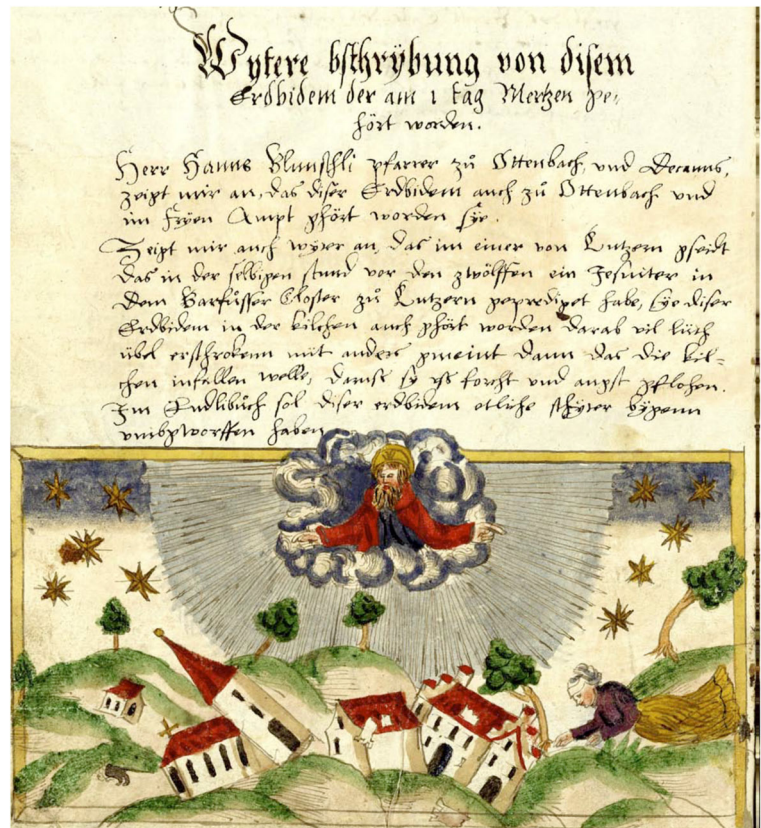 Wytere bschrÿbung von disem
Erdbidem der am 1 tag Mertzen ge-
hört worden.
Herr Hanns Bluntschli pfarrer zů Ottenbach, und Decanus,
zeigt mir an, das diser Erdbidem auch zů Ottenbach und
im Fryen Ampt ghört worden sÿe.
Zeigt mir auch wÿter an, das im einer von Lutzern gseidt
das in der selbigen stund vor den zwölffen ein Jesuiter in
dem Barfůsser Closter zů Lutzern geprediget habe, sÿe diser
Erdbidem in der kilchen auch ghört worden darab vil lüth
übel erschrokenn nüt anders gmeint dann das die kil-
chen infallen welle, sy forcht und angst gflohen.
Im Endlibůch sol diser erdbidem etliche bÿgenn
umbgworffen haben